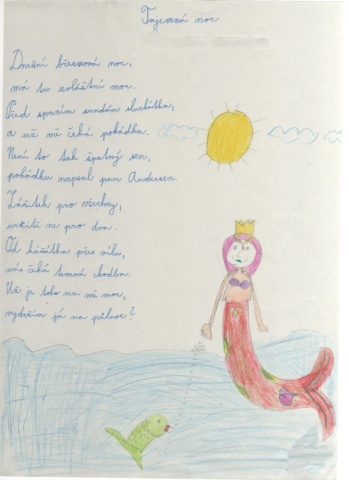 Tajemná noc
Dnešní březnová noc,
má tu zvláštní moc.
Před spaním sundám sluchátka,
a už mě čeká pohádka.
Není to tak špatný sen,
pohádku napsal pan Andersen.
Zážitek pro všechny,
určitě ne pro dva.
Od káčátka přes vílu,
nás čeká temná chodba.
Už je toho na mě moc,
vydržím já na půlnoc?